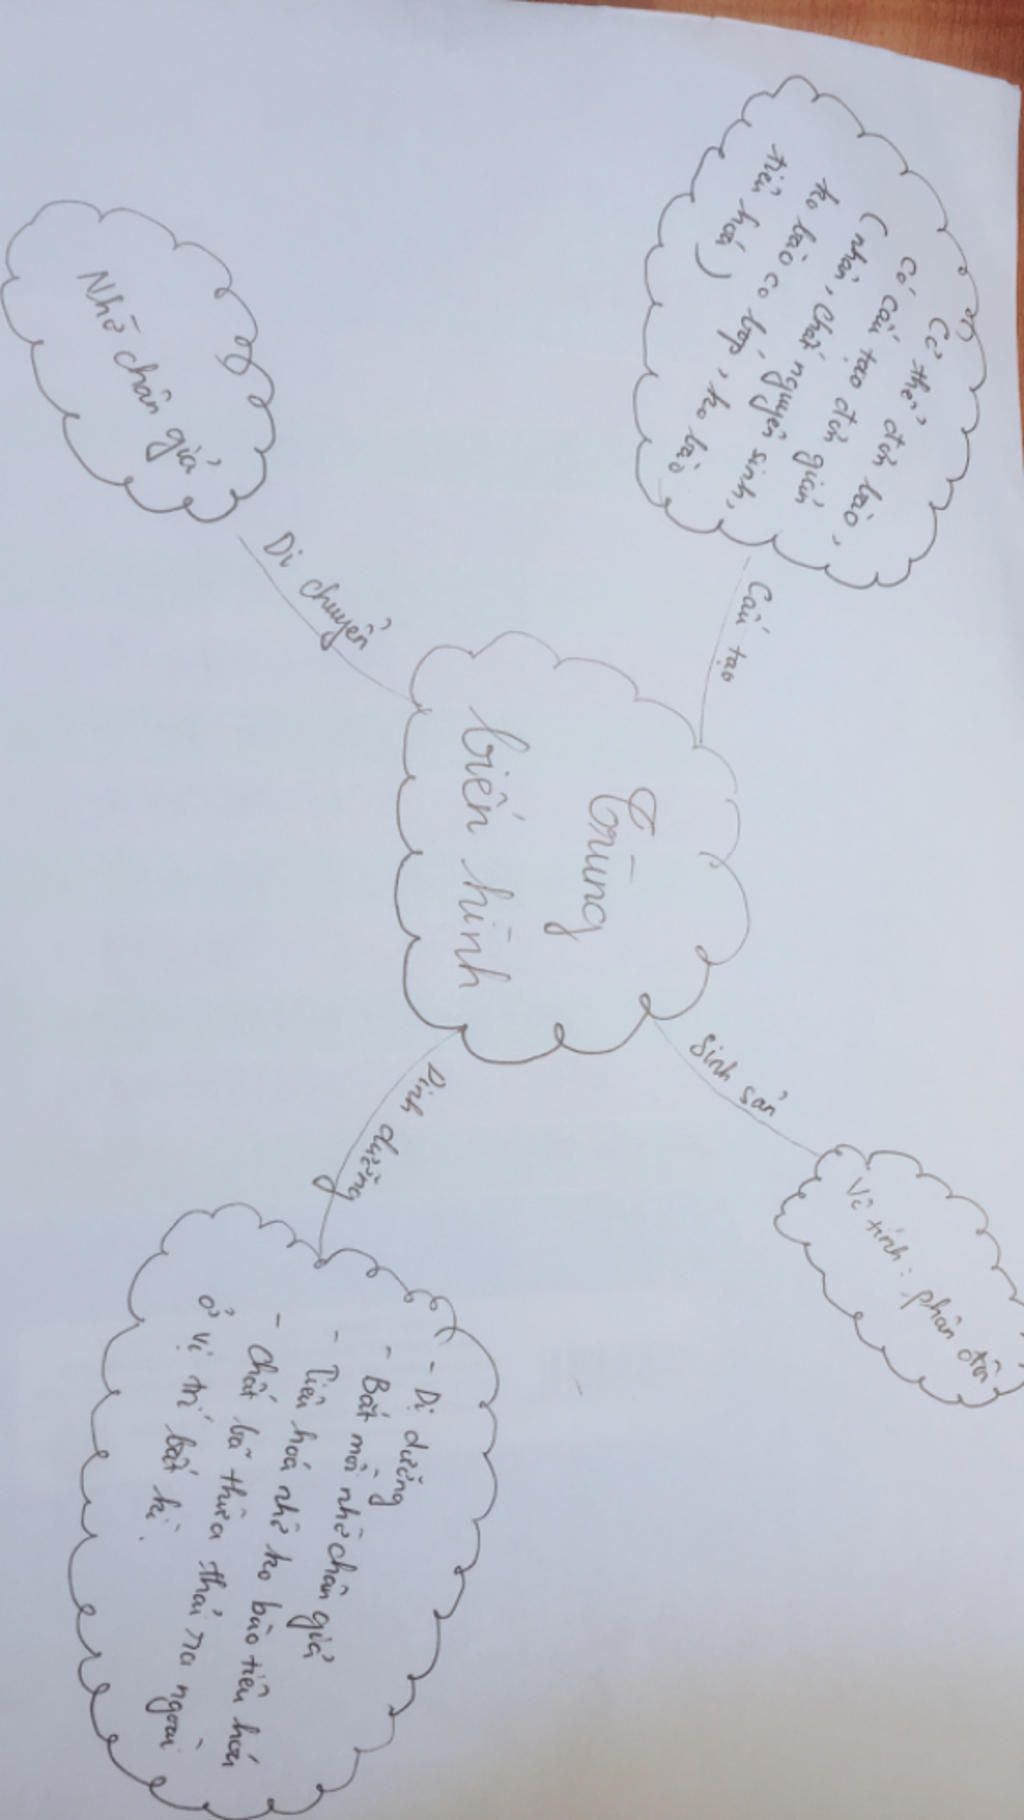 Trùng
biến hình
Cấu tạo
Cơ thể đơn bào,
có cấu tạo đơn giản
(nhân, chất nguyên sinh,
ko bào co bóp, ko bào
tiêu hoá)
Di chuyển
Nhờ chân giả
Sinh sản
Vô tính: phân đôi
Dinh dưỡng
- Dị dưỡng
- Bắt mồi nhờ chân giả
- Tiêu hoá nhờ ko bào tiêu hoá
- Chất bã thừa thải ra ngoài
ở vị trí bất kì.